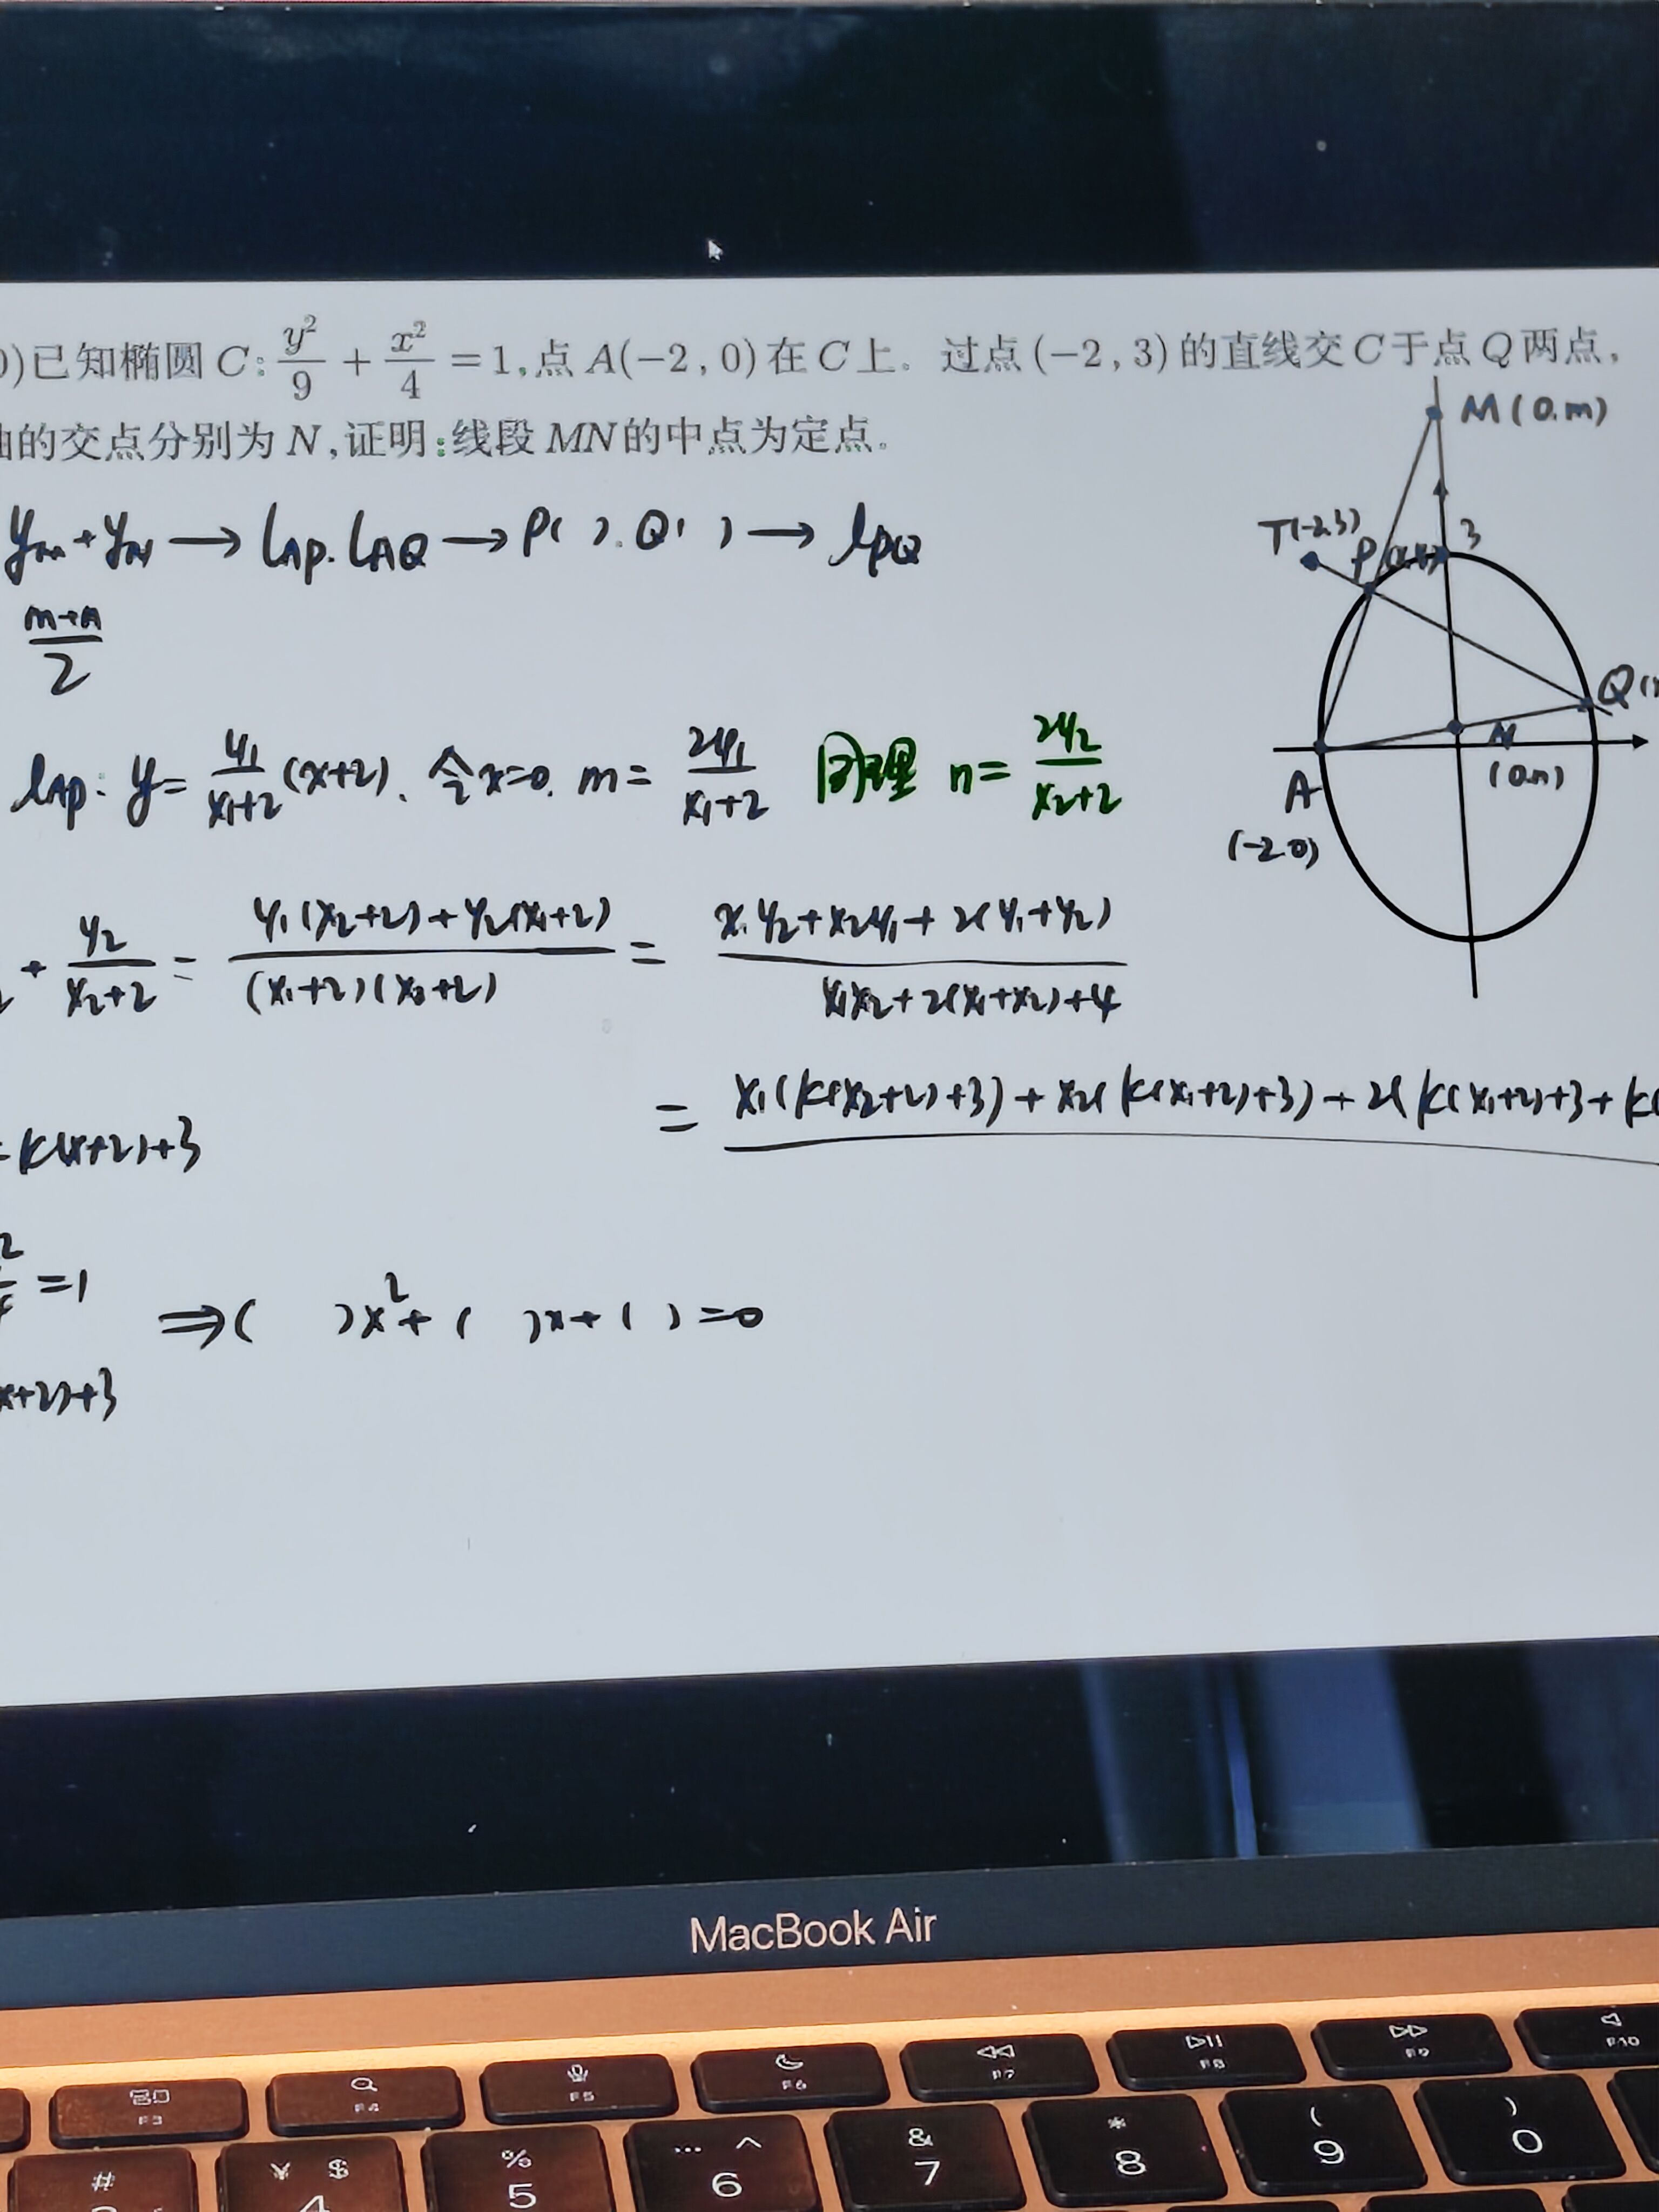 )已知椭圆C:y²/9+x²/4=1,点A(-2,0)在C上。过点(-2,3)的直线交C于点Q两点,
的交点分别为N,证明:线段MN的中点为定点。
M(0.m)
yₘ+y_N→l_AP.l_AQ→P( ).Q( )→l_PQ
T(-2.3)
P
3
m+n/2
Q
l_AP: y=y₁/x₁+2(x+2). 令x=0. m=2y₁/x₁+2 同理 n=2y₂/x₂+2
N
(0.n)
A
(-2.0)
+y₂/x₂+2=y₁(x₂+2)+y₂(x₁+2)/(x₁+2)(x₂+2)=x₁y₂+x₂y₁+2(y₁+y₂)/x₁x₂+2(x₁+x₂)+4
=x₁(k(x₂+2)+3)+x₂(k(x₁+2)+3)+2(k(x₁+2)+3+k(
=k(x+2)+3
=1 ⇒( )x²+( )x+( )=0
x+2)+3
MacBook Air
F3 F4 F5 F6 F7 F8 F9 F10
# ¥ $ % … ^ & * ( )
4 5 6 7 8 9 0